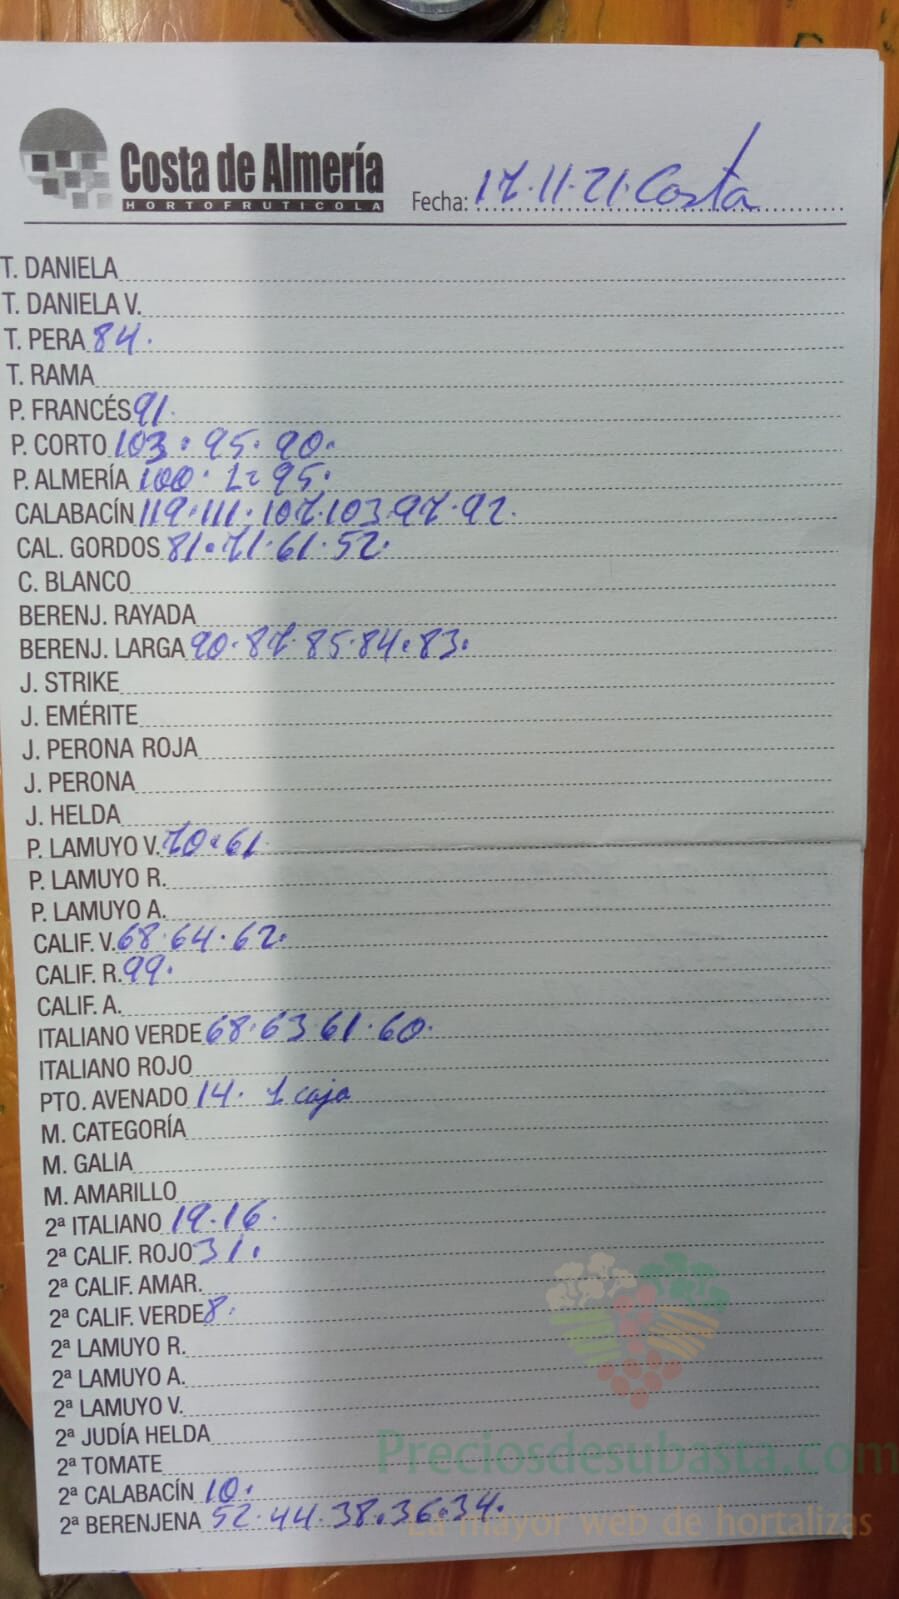 Costa de Almería
HORTOFRUTICOLA
Fecha: 17.11.21. Costa
T. DANIELA
T. DANIELA V.
T. PERA 84.
T. RAMA
P. FRANCÉS 91.
P. CORTO 103. 95. 90.
P. ALMERÍA 100. 95.
CALABACÍN 119. 111. 107. 103 97. 92.
CAL. GORDOS 81. 71. 61. 52.
C. BLANCO
BERENJ. RAYADA
BERENJ. LARGA 90. 87. 85. 84. 83.
J. STRIKE
J. EMÉRITE
J. PERONA ROJA
J. PERONA
J. HELDA
P. LAMUYO V. 70. 61.
P. LAMUYO R.
P. LAMUYO A.
CALIF. V. 68. 64. 62.
CALIF. R. 99.
CALIF. A.
ITALIANO VERDE 68. 63 61. 60.
ITALIANO ROJO
PTO. AVENADO 14. 1 caja
M. CATEGORÍA
M. GALIA
M. AMARILLO
2ª ITALIANO 19. 16.
2ª CALIF. ROJO 31.
2ª CALIF. AMAR.
2ª CALIF. VERDE 8.
2ª LAMUYO R.
2ª LAMUYO A.
2ª LAMUYO V.
2ª JUDÍA HELDA
2ª TOMATE
Preciosdesubasta.com
2ª CALABACÍN 10.
2ª BERENJENA 52. 44. 38. 36. 34.
La mayor web de hortalizas